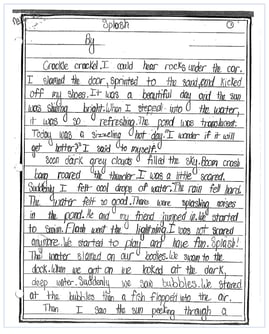 Splash
By
Crackle crackel. I could hear rocks under the car.
I slamed the door, sprinted to the sand, and kicked
off my shoes. It was a beautiful day and the sun
was shining bright. When I steped into the water,
it was so refreshing. The pond was translucent.
Today was a sizzeling hot day. "I wonder if it will
get hotter?" I said to myself.
Soon dark grey clouds filled the sky. Boom crash
bang roared the thunder. I was a little scared.
Suddenly I felt cool drops of water. The rain fell hard.
The water felt so good. There were splashing noises
in the pond. Me and my friend jumped in. We started
to swim. Flash went the lightning. I was not scared
anymore. We started to play and have fun. Splash!
The water slamed on our bodies. We swam to the
dock. When we got on we looked at the dark,
deep water. Suddenly we saw bubbles. We stared
at the bubbles then a fish flopped into the air.
Then I saw the sun peeking through a